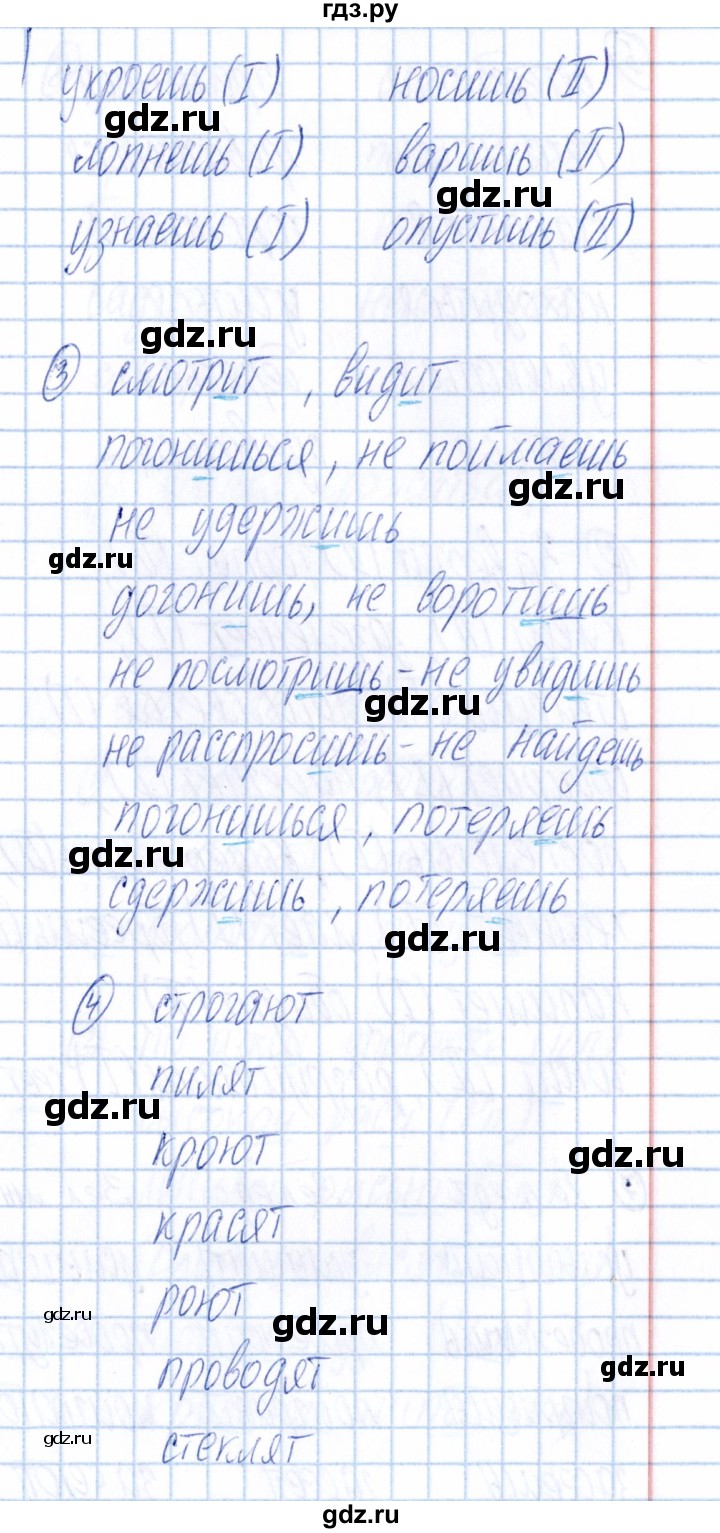 гдз.ру
укроешь (I) носишь (II)
gdz.ru
лопнешь (I) варишь (II)
gdz.ru
узнаешь (I) опустишь (II)
gdz.ru
③ смотрит , видит
погонишься, не поймаешь
gdz.ru
не удержишь
gdz.ru
догонишь, не воротишь
не посмотришь - не увидишь
gdz.ru
не расспросишь - не найдешь
погонишься, потеряешь
gdz.ru
сдержишь, потеряешь
gdz.ru
④ строгают
пилят
gdz.ru
кроют
gdz.ru
красят
роют
gdz.ru gdz.ru
проводят
gdz.ru
стеклят
gdz.ru
gdz.ru